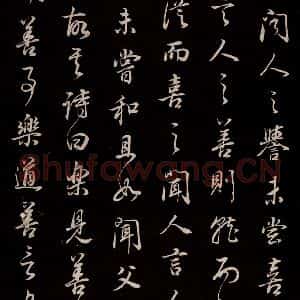 聞人之譽未嘗喜
言人之善則就而
從而喜之聞人言人
未嘗和
聞父
故其詩曰樂見善
善事樂道善言
Shufawang.CN